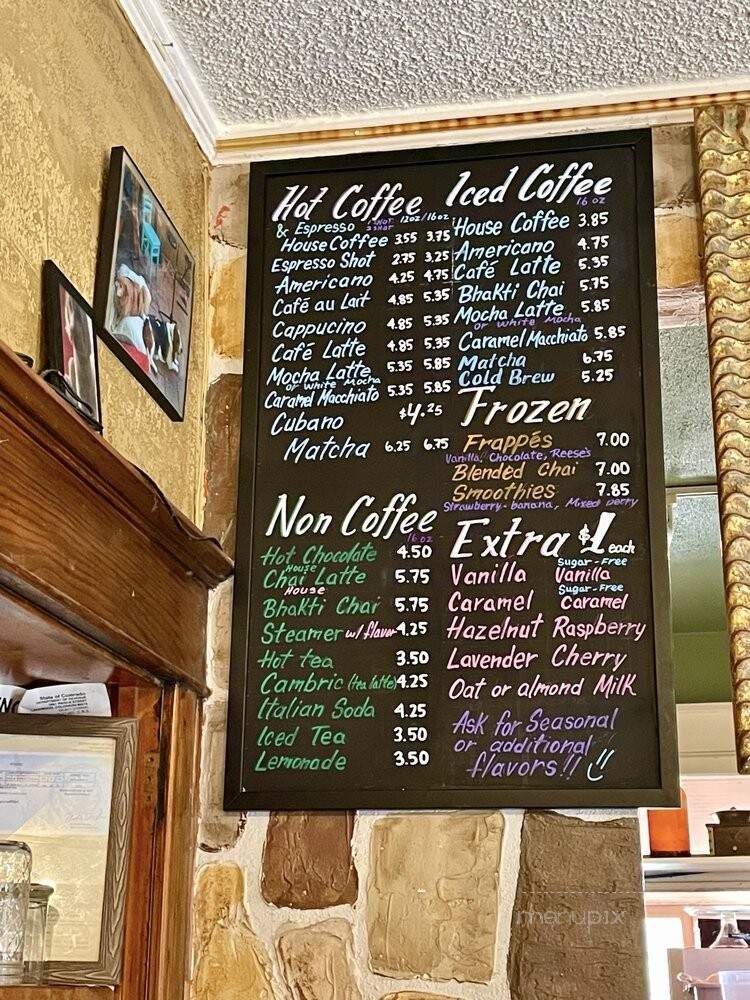 Hot Coffee
12oz/16oz
& Espresso
House Coffee 3.55 3.75
Espresso Shot 2.75 3.25
Americano 4.25 4.75
Café au Lait 4.85 5.35
Cappucino 4.85 5.35
Café Latte 4.85 5.35
Mocha Latte 5.35 5.85
or White Mocha
Caramel Macchiato 5.35 5.85
Cubano $4.25
Matcha 6.25 6.75
Non Coffee
16 oz
Hot Chocolate 4.50
House
Chai Latte 5.75
House
Bhakti Chai 5.75
Steamer w/ flavor 4.25
Hot tea 3.50
Cambric (tea latte) 4.25
Italian Soda 4.25
Iced Tea 3.50
Lemonade 3.50
Iced Coffee
16 oz
House Coffee 3.85
Americano 4.75
Café Latte 5.35
Bhakti Chai 5.75
Mocha Latte 5.85
or White Mocha
Caramel Macchiato 5.85
Matcha 6.75
Cold Brew 5.25
Frozen
Frappés 7.00
Vanilla, Chocolate, Reese's
Blended Chai 7.00
Smoothies 7.85
Strawberry-banana, Mixed berry
Extra $1 each
Vanilla Sugar-Free Vanilla
Caramel Sugar-Free Caramel
Hazelnut Raspberry
Lavender Cherry
Oat or almond Milk
Ask for Seasonal
or additional
flavors!!
State of Colorado
menupix